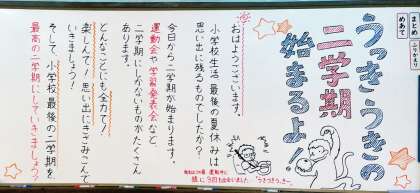 まとめ
めあて
ふりかえり
うっきうきの
二学期
始まるよ！
おはようございます。
小学校生活 最後の夏休みは
思い出に残るものでしたか。
今日から二学期が始まります。
運動会や学習発表会など、
二学期にしかないもの水たくさん
あります。
どんなことにも全力で！
楽しんで！思い出にきざみこんで
いきましょう！
そして、小学校最後の二学期を
最高の二学期にしていきましょう！